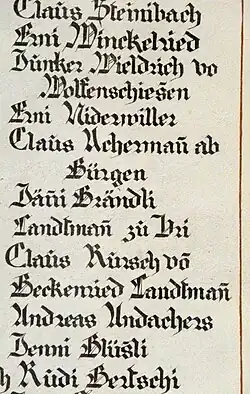 Claus Steinibach
Erni Winckelried
Junker Wieldrich vo
Wolfenschiesen
Erni Niderwiller
Claus Acherman̄ ab
Bürgen
Jän̄i Brändli
Landtman̄ zu Uri
Claus Rursch vō
Beckenried Landtman̄
Andreas Andachers
Jenni Blüsli
h Rüdi Bertschi